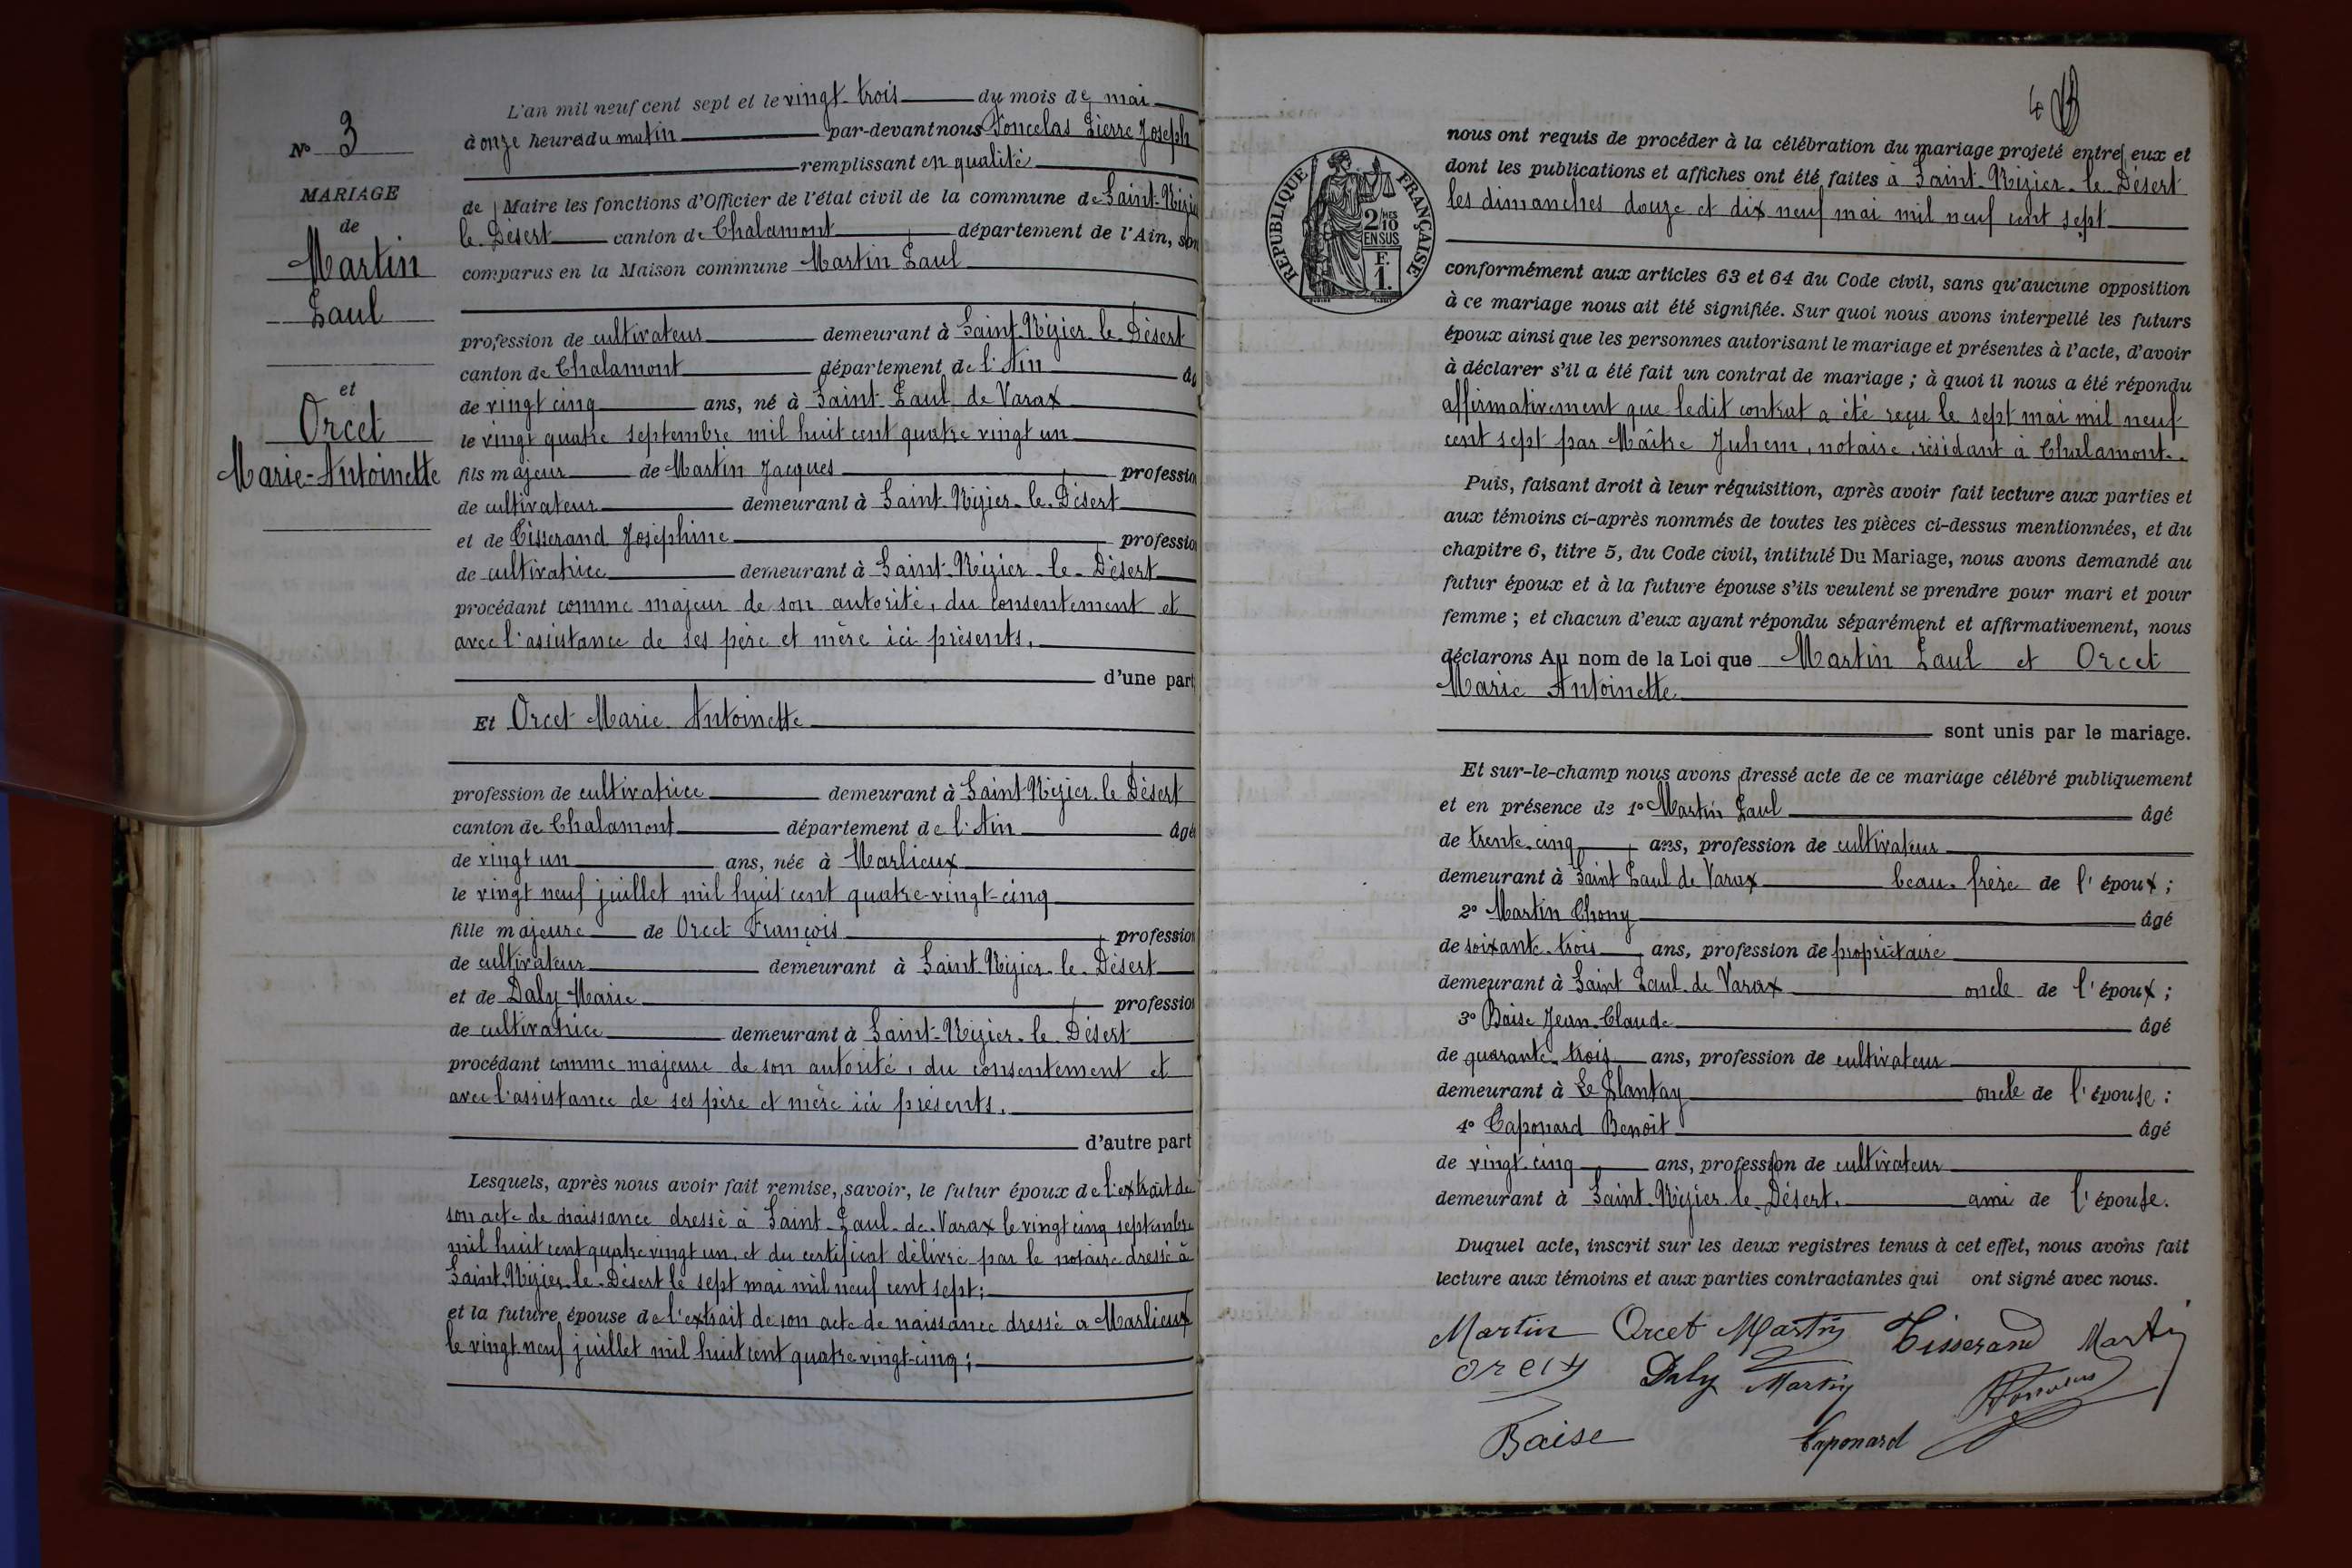 N° 3
MARIAGE
de
Martin
Paul
et
Orcet
Marie-Antoinette
L'an mil neuf cent sept et le vingt-trois du mois de mai
à onze heures du matin par-devant nous Poncelas Pierre Joseph
remplissant en qualité
de Maire les fonctions d'Officier de l'état civil de la commune de Saint-Nizier
le-Désert canton de Chalamont département de l'Ain, son
comparus en la Maison commune Martin Paul
profession de cultivateur demeurant à Saint-Nizier-le-Désert
canton de Chalamont département de l'Ain âg
de vingt cinq ans, né à Saint-Paul-de-Varax
le vingt quatre septembre mil huit cent quatre vingt un
fils majeur de Martin Jacques profession
de cultivateur demeurant à Saint-Nizier-le-Désert
et de Tisserand Joséphine profession
de cultivatrice demeurant à Saint-Nizier-le-Désert
procédant comme majeur de son autorité, du consentement et
avec l'assistance de ses père et mère ici présents.
d'une part
Et Orcet Marie Antoinette
profession de cultivatrice demeurant à Saint-Nizier-le-Désert
canton de Chalamont département de l'Ain âgé
de vingt un ans, née à Marlieux
le vingt neuf juillet mil huit cent quatre-vingt-cinq
fille majeure de Orcet François profession
de cultivateur demeurant à Saint-Nizier-le-Désert
et de Daly Marie profession
de cultivatrice demeurant à Saint-Nizier-le-Désert
procédant comme majeure de son autorité, du consentement et
avec l'assistance de ses père et mère ici présents.
d'autre part
Lesquels, après nous avoir fait remise, savoir, le futur époux de l'extrait de
son acte de naissance dressé à Saint-Paul-de-Varax le vingt cinq septembre
mil huit cent quatre vingt un, et du certificat délivré par le notaire dressé à
Saint-Nizier-le-Désert le sept mai mil neuf cent sept;
et la future épouse de l'extrait de son acte de naissance dressé a Marlieux
le vingt neuf juillet mil huit cent quatre vingt-cinq;
4
RÉPUBLIQUE FRANÇAISE
2/10MES
EN SUS
F.
1.
nous ont requis de procéder à la célébration du mariage projeté entre eux et
dont les publications et affiches ont été faites à Saint-Nizier-le-Désert
les dimanches douze et dix neuf mai mil neuf cent sept
conformément aux articles 63 et 64 du Code civil, sans qu'aucune opposition
à ce mariage nous ait été signifiée. Sur quoi nous avons interpellé les futurs
époux ainsi que les personnes autorisant le mariage et présentes à l'acte, d'avoir
à déclarer s'il a été fait un contrat de mariage ; à quoi il nous a été répondu
affirmativement que ledit contrat a été reçu le sept mai mil neuf
cent sept par Maître Juhem, notaire résidant à Chalamont.
Puis, faisant droit à leur réquisition, après avoir fait lecture aux parties et
aux témoins ci-après nommés de toutes les pièces ci-dessus mentionnées, et du
chapitre 6, titre 5, du Code civil, intitulé Du Mariage, nous avons demandé au
futur époux et à la future épouse s'ils veulent se prendre pour mari et pour
femme ; et chacun d'eux ayant répondu séparément et affirmativement, nous
déclarons Au nom de la Loi que Martin Paul et Orcet
Marie Antoinette
sont unis par le mariage.
Et sur-le-champ nous avons dressé acte de ce mariage célébré publiquement
et en présence de 1° Martin Paul âgé
de trente-cinq ans, profession de cultivateur
demeurant à Saint Paul de Varax beau-frère de l'époux ;
2° Martin Chony âgé
de soixante-trois ans, profession de propriétaire
demeurant à Saint Paul-de Varax oncle de l'époux ;
3° Baise Jean-Claude âgé
de quarante-trois ans, profession de cultivateur
demeurant à Le Plantay oncle de l'épouse ;
4° Caponard Benoit âgé
de vingt-cinq ans, profession de cultivateur
demeurant à Saint-Nizier-le-Désert. ami de l'épouse.
Duquel acte, inscrit sur les deux registres tenus à cet effet, nous avons fait
lecture aux témoins et aux parties contractantes qui ont signé avec nous.
Martin Orcet Martin Tisserand Martin
Daly Martin
Baise Caponard